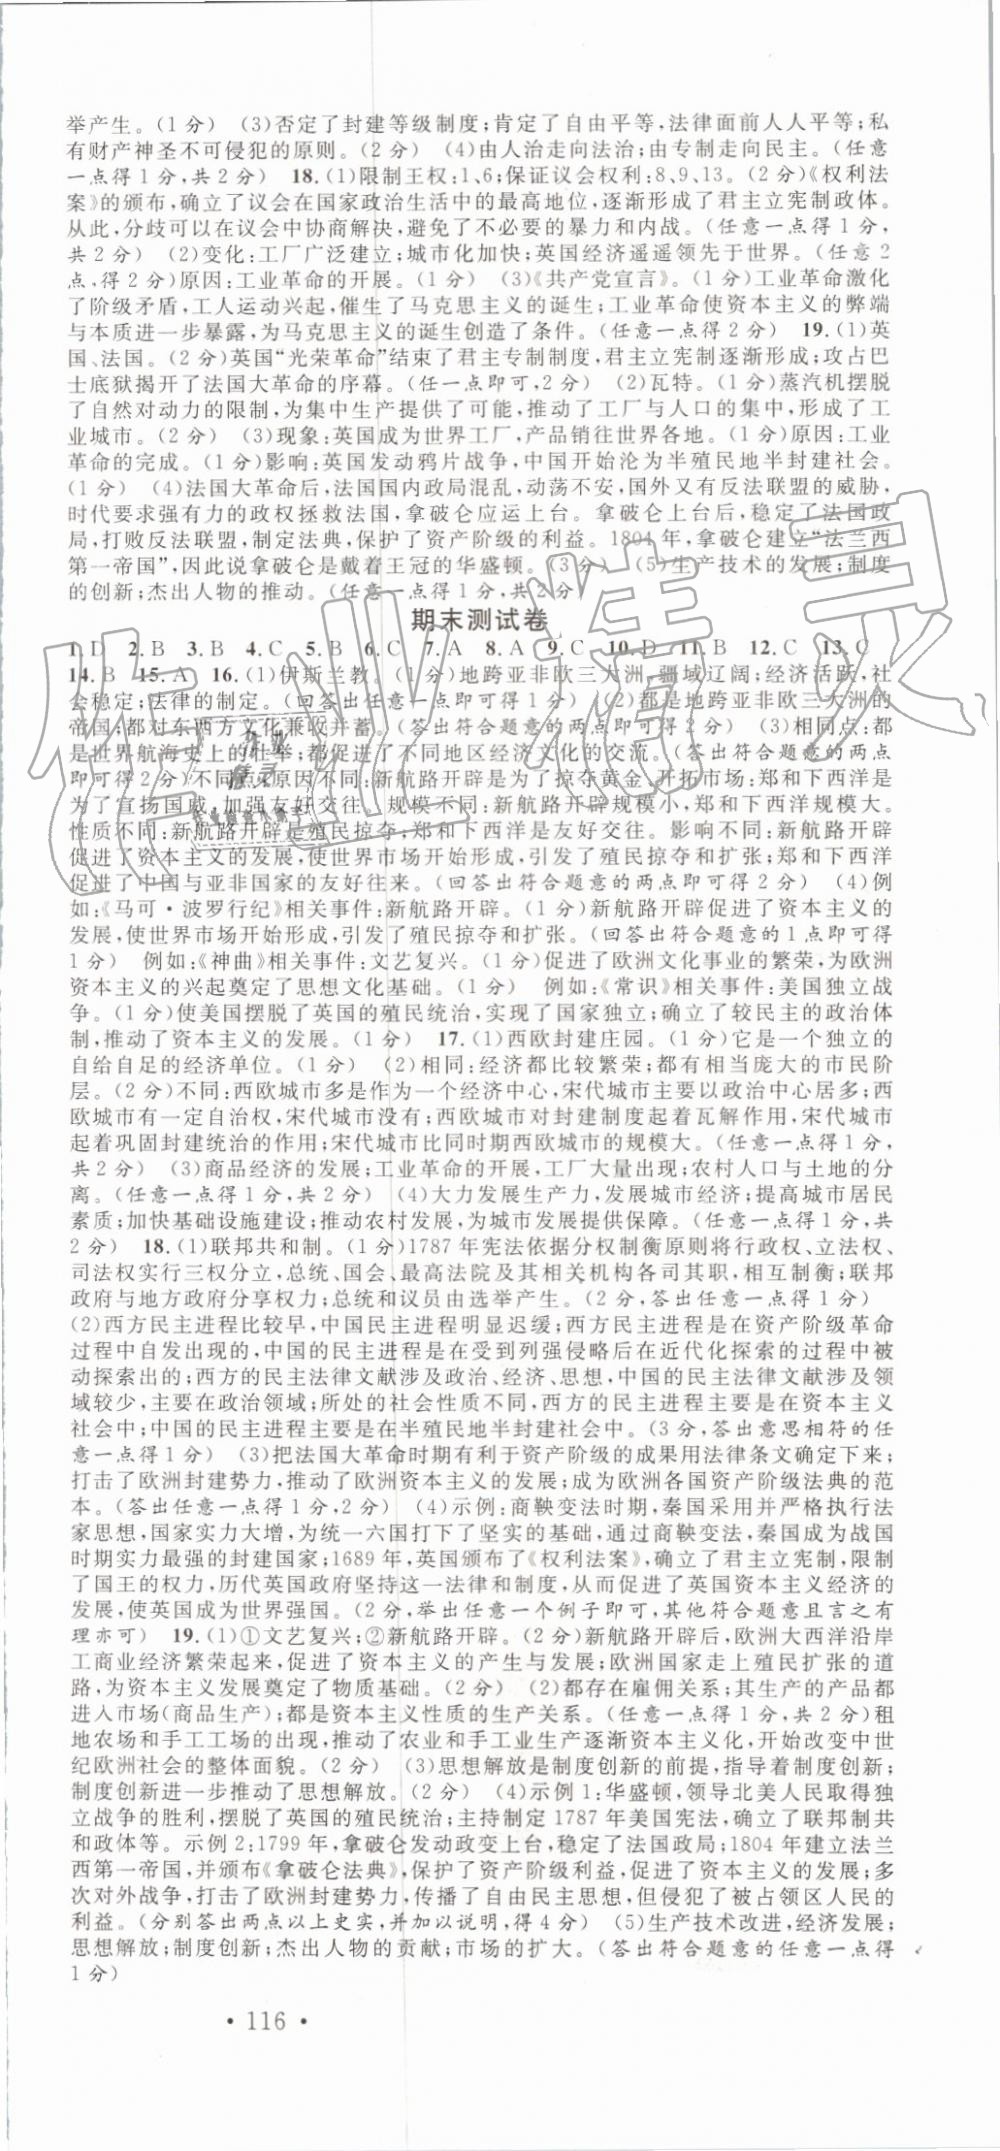 举产生。(1分) (3)否定了封建等级制度;肯定了自由平等,法律面前人人平等;私
有财产神圣不可侵犯的原则。(2分) (4)由人治走向法治;由专制走向民主。(任意
一点得1分,共2分) 18.(1)限制王权:1、6;保证议会权利:8、9、13。(2分)《权利法
案》的颁布,确立了议会在国家政治生活中的最高地位,逐渐形成了君主立宪制政体。
从此,分歧可以在议会中协商解决,避免了不必要的暴力和内战。(任意一点得1分,
共2分) (2)变化:工厂广泛建立;城市化加快;英国经济遥遥领先于世界。(任意2
点,得2分)原因:工业革命的开展。(1分) (3)《共产党宣言》。(1分)工业革命激化
了阶级矛盾,工人运动兴起,催生了马克思主义的诞生;工业革命使资本主义的弊端
与本质进一步暴露,为马克思主义的诞生创造了条件。(任意一点得2分) 19.(1)英
国、法国。(2分)英国“光荣革命”结束了君主专制制度,君主立宪制逐渐形成;攻占巴
士底狱揭开了法国大革命的序幕。(任一点即可,2分) (2)瓦特。(1分)蒸汽机摆脱
了自然对动力的限制,为集中生产提供了可能,推动了工厂与人口的集中,形成了工
业城市。(2分) (3)现象:英国成为世界工厂,产品销往世界各地。(1分)原因:工业
革命的完成。(1分)影响:英国发动鸦片战争,中国开始沦为半殖民地半封建社会。
(1分) (4)法国大革命后,法国国内政局混乱,动荡不安,国外又有反法联盟的威胁,
时代要求强有力的政权拯救法国,拿破仑应运上台。拿破仑上台后,稳定了法国政
局,打败反法联盟,制定法典,保护了资产阶级的利益。1804年,拿破仑建立“法兰西
第一帝国”,因此说拿破仑是戴着王冠的华盛顿。(3分) (5)生产技术的发展;制度
的创新;杰出人物的推动。(任意一点得1分,共2分)
期末测试卷
1.D 2.B 3.B 4.C 5.B 6.C 7.A 8.A 9.C 10.D 11.B 12.C 13.C
14.B 15.A 16.(1)伊斯兰教。(1分)地跨亚非欧三大洲,疆域辽阔;经济活跃,社
会稳定;法律的制定。(回答出任意一点即可得1分) (2)都是地跨亚非欧三大洲的
帝国;都对东西方文化兼收并蓄。(答出符合题意的两点即可得2分) (3)相同点:都
是世界航海史上的壮举;都促进了不同地区经济文化的交流。(答出符合题意的两点
即可得2分)不同点:原因不同:新航路开辟是为了掠夺黄金、开拓市场;郑和下西洋是
为了宣扬国威,加强友好交往。规模不同:新航路开辟规模小,郑和下西洋规模大。
性质不同:新航路开辟是殖民掠夺;郑和下西洋是友好交往。影响不同:新航路开辟
促进了资本主义的发展,使世界市场开始形成,引发了殖民掠夺和扩张;郑和下西洋
促进了中国与亚非国家的友好往来。(回答出符合题意的两点即可得2分) (4)例
如:《马可·波罗行纪》相关事件:新航路开辟。(1分)新航路开辟促进了资本主义的
发展,使世界市场开始形成,引发了殖民掠夺和扩张。(回答出符合题意的1点即可得
1分) 例如:《神曲》相关事件:文艺复兴。(1分)促进了欧洲文化事业的繁荣,为欧洲
资本主义的兴起奠定了思想文化基础。(1分) 例如:《常识》相关事件:美国独立战
争。(1分)使美国摆脱了英国的殖民统治,实现了国家独立;确立了较民主的政治体
制,有利于资本主义的发展。(1分) 17.(1)西欧封建庄园。(1分)它是一个独立的
自给自足的经济单位。(1分) (2)相同:经济都比较繁荣;都有相当庞大的市民阶
层。(2分)不同:西欧城市多是作为一个经济中心,宋代城市主要以政治中心居多;西
欧城市有一定自治权,宋代城市没有;西欧城市对封建制度起着瓦解作用,宋代城市
起着巩固封建统治的作用;宋代城市比同时期西欧城市的规模大。(任意一点得1分,
共2分) (3)商品经济的发展;工业革命的开展,工厂大量出现;农村人口与土地的分
离。(任意一点得1分,共2分) (4)大力发展生产力,发展城市经济;提高城市居民
素质;加快基础设施建设;推动农村发展,为城市发展提供保障。(任意一点得1分,共
2分) 18.(1)联邦共和制。(1分)1787年宪法依据分权制衡原则将行政权、立法权、
司法权实行三权分立,总统、国会、最高法院及其相关机构各司其职,相互制衡;联邦
政府与地方政府分享权力;总统和议员由选举产生。(2分,答出任意一点即可1分)
(2)西方民主进程比较早,中国民主进程明显迟缓;西方民主进程是在资产阶级革命
过程中自发出现的,中国的民主进程是在受到列强侵略后在近代化探索的过程中被
动探索出的;西方的民主法律文献涉及政治、经济、思想,中国民主法律文献涉及领
域较少,主要在政治领域;所处的社会性质不同,西方的民主进程主要是在资本主义
社会中;中国的民主进程主要是在半殖民地半封建社会中。(3分,答出意思相符的任
意一点得1分) (3)把法国大革命时期有利于资产阶级的成果用法律条文确定下来;
打击了欧洲封建势力,推动了欧洲资本主义的发展;成为欧洲各国资产阶级法典的范
本。(答出任意一点得1分,2分) (4)示例:商鞅变法时期,秦国采用并严格执行法
家思想,国家实力大增,为统一六国打下了坚实的基础,通过商鞅变法,秦国成为战国
时期实力最强的封建国家;1689年,英国颁布了《权利法案》,确立了君主立宪制,限制
了国王的权力,历代英国政府坚持这一法律和制度,从而促进了英国资本主义经济的
发展,使英国成为世界强国。(2分,举出任意一个例子即可,其他符合题意且言之有
理亦可) 19.(1)①文艺复兴;②新航路开辟。(2分)新航路开辟后,欧洲大西洋沿岸
工商业经济繁荣起来,促进了资本主义的产生与发展;欧洲国家走上殖民扩张的道
路,为资本主义发展奠定了物质基础。(2分) (2)都存在雇佣关系;其生产的产品都
进入市场(商品生产);都是资本主义性质的生产关系。(任意一点得1分,共2分)租
地农场和手工工场的出现,推动了农业和手工业生产逐渐资本主义化,开始改变中世
纪欧洲社会的整体面貌。(2分) (3)思想解放是制度创新的前提,指导着制度创新;
制度创新进一步推动了思想解放。(2分) (4)示例1:华盛顿,领导北美人民取得独
立战争的胜利,摆脱了英国的殖民统治;主持制定1787年美国宪法,确立了联邦制共
和政体等。示例2:1799年,拿破仑发动政变上台,稳定了法国政局;1804年建立法兰
西第一帝国,并颁布《拿破仑法典》,保护了资产阶级利益,促进了资本主义的发展;多
次对外战争,打击了欧洲封建势力,传播了自由民主思想,但侵犯了被占领区人民的
利益。(分别答出两点以上史实,并加以说明,得4分) (5)生产技术改进,经济发展;
思想解放;制度创新;杰出人物的贡献;市场的扩大。(答出符合题意的任意一点得
1分)
· 116 ·
作业精灵